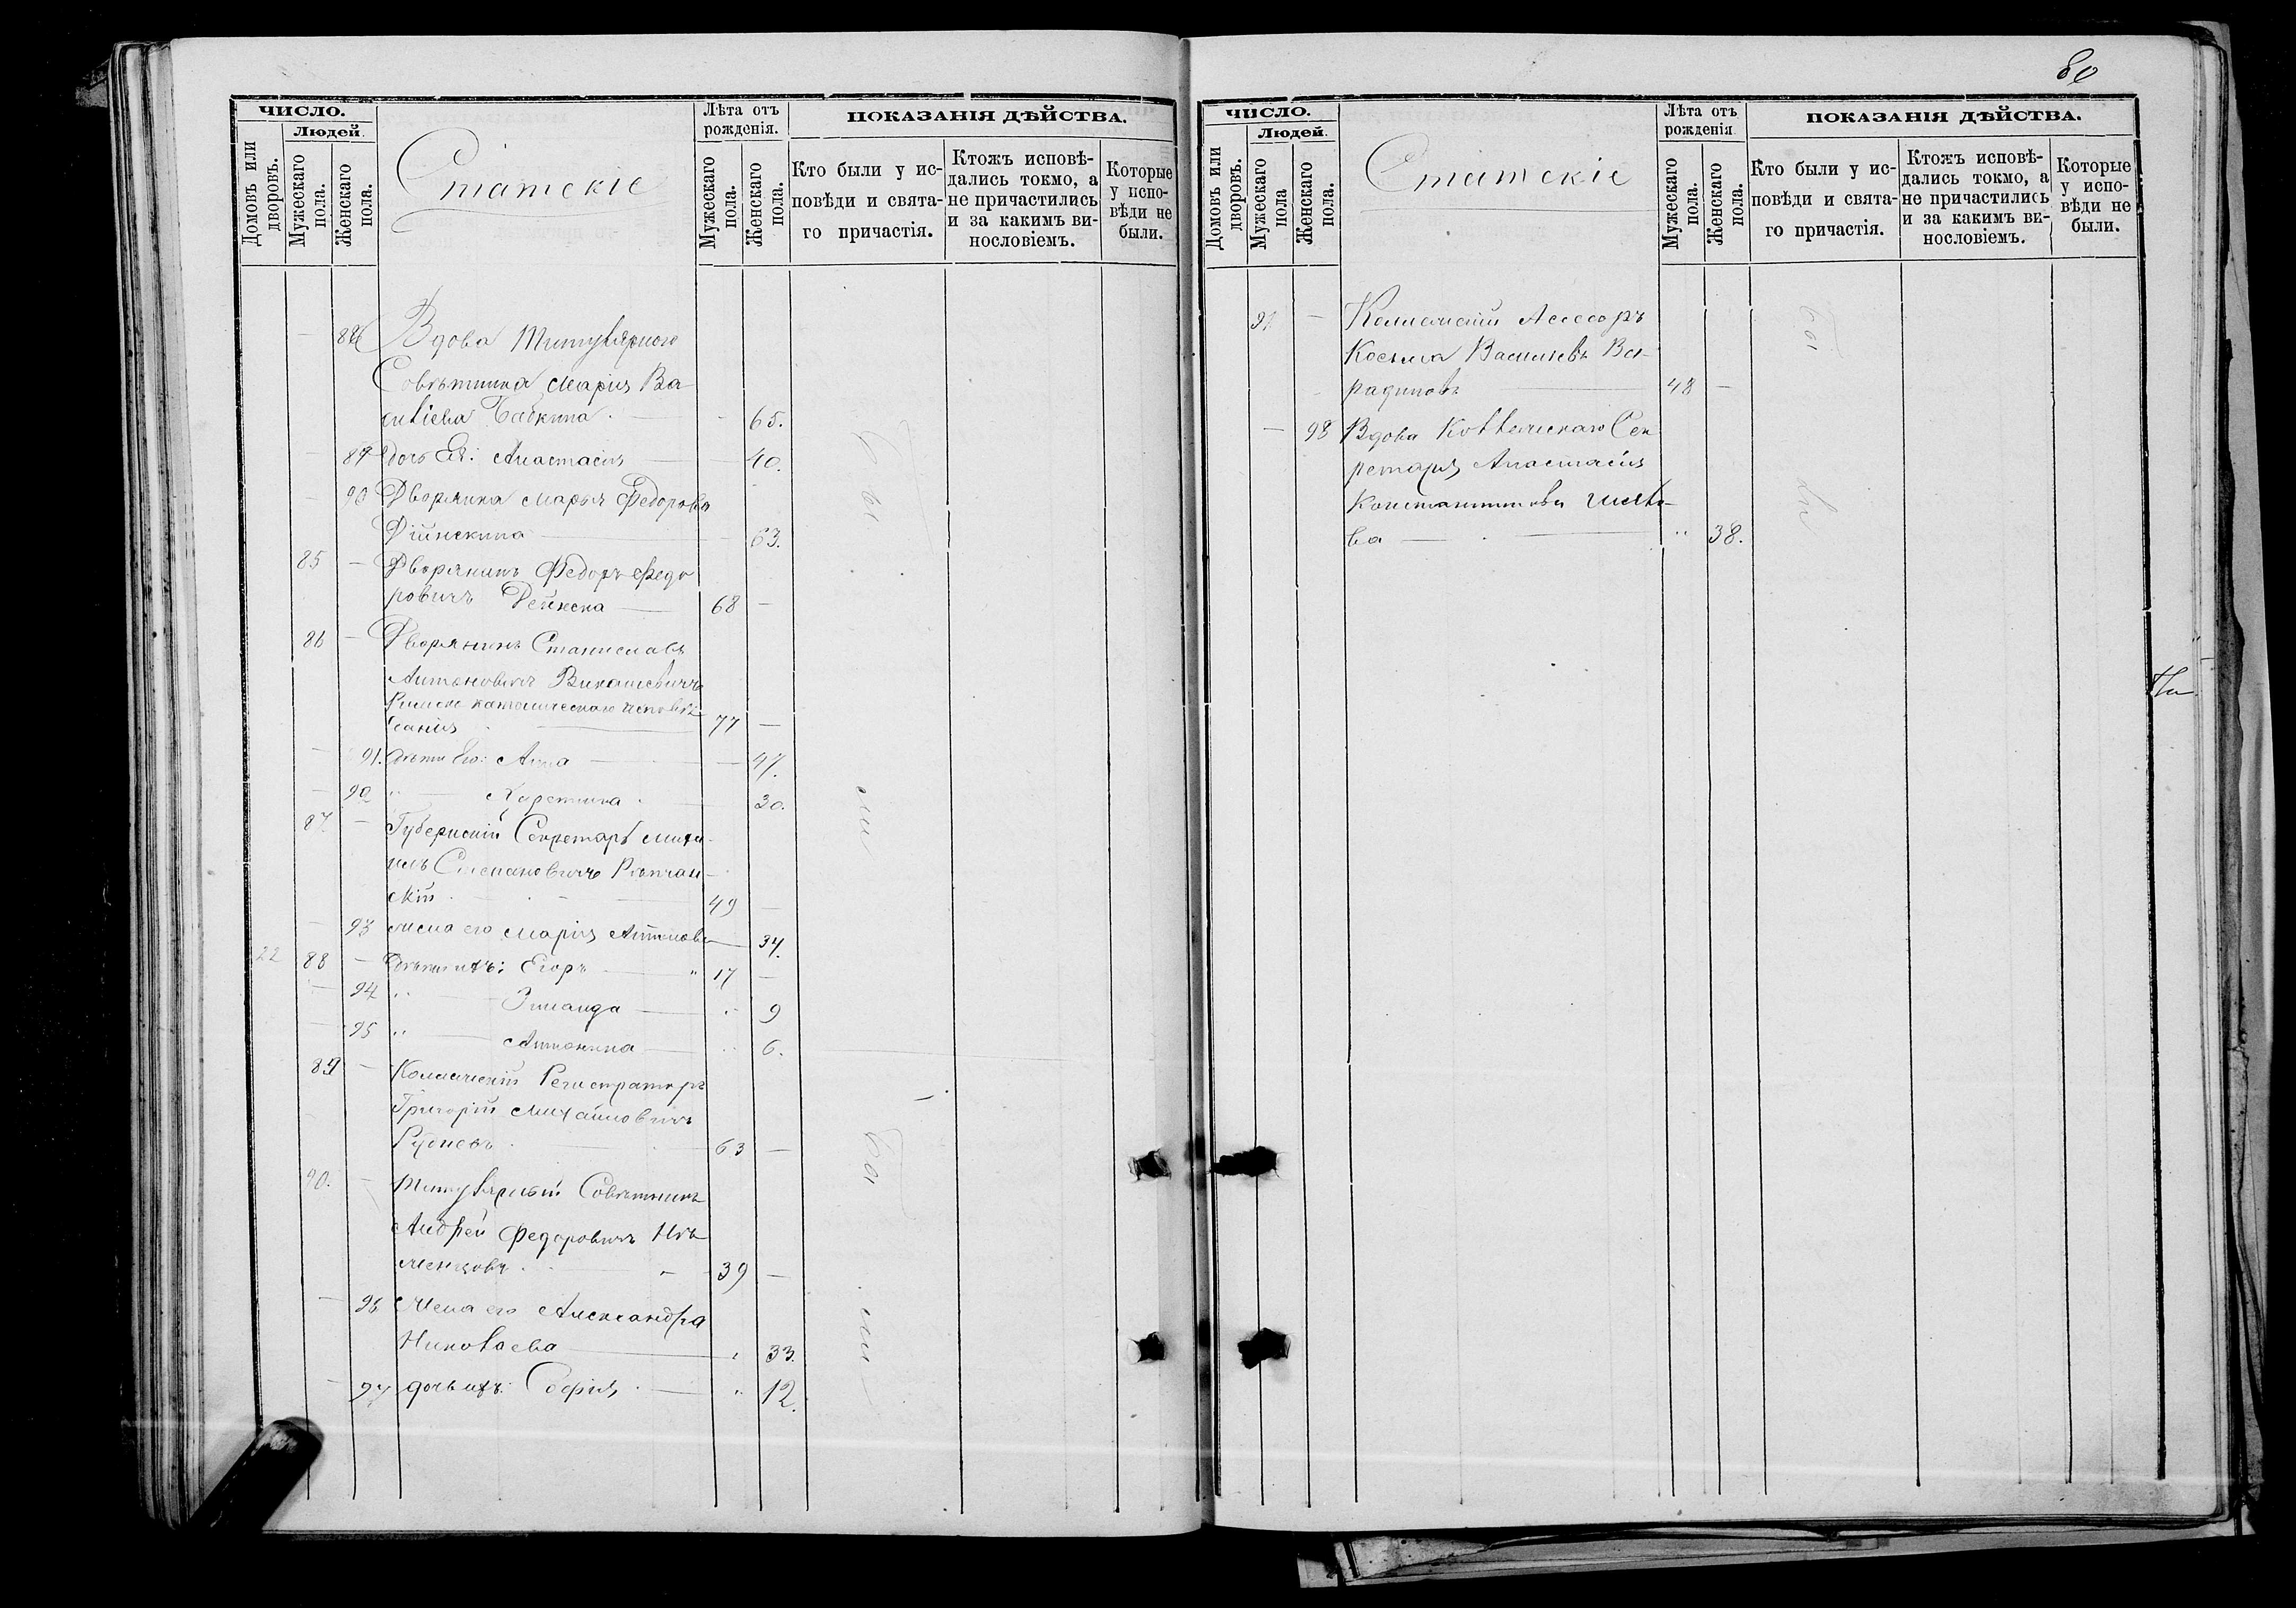 80
ЧИСЛО.
Людей.
Домовъ или дворовъ.
Мужескаго пола.
Женскаго пола.
Статскіе
Лѣта отъ рожденія.
Мужескаго пола.
Женскаго пола.
ПОКАЗАНІЯ ДѢЙСТВА.
Кто были у исповѣди и святаго причастія.
Ктожъ исповѣдались токмо, а не причастились и за какимъ винословіемъ.
Которые у исповѣди не были.
— Вдова Титулярнаго
Совѣтника Марія Ва-
силіева Бабкина — 65.
— 89 дочь Ея: Анастасія — 40.
— 90 Дворянка Марья Федорова
— 63.
85 — Дворянинъ Федоръ Федо
ровичъ Дейнека — 68 —
86 — Дворянинъ Станиславъ
Антоновичъ
Римско католическаго исповѣ
данія — 77 —
— 91. дѣти Его: Анна — 47.
— 92 " — 30.
87. — Губернскій Секретарь Миха-
илъ Степановичъ
скій — 49 —
— 93 Жена его Марія Антонова — 34.
22 88 — Дѣти ихъ: Егоръ — " 17 —
— 94 " — Зинаида — " 9
— 95 " — Антонина — " 6.
89 — Коллежскій Регистраторъ
Григорій Михайловичъ
Рудневъ — 63 —
90. — Титулярный Совѣтникъ
Андрей Федоровичъ Нѣ
менцовъ — 39 —
— 96 Жена его Александра
Николаева — " 33.
— 97 дочь ихъ: Софія — " 12.
были
были
ЧИСЛО.
Людей.
Домовъ или дворовъ.
Мужескаго пола
Женскаго пола.
Статскіе
Лѣта отъ рожденія
Мужескаго пола.
Женскаго пола.
ПОКАЗАНІЯ ДѢЙСТВА.
Кто были у исповѣди и святаго причастія.
Ктожъ исповѣдались токмо, а не причастились и за какимъ винословіемъ.
Которые у исповѣди не были.
91 — Коллежскій Асессоръ
Косьма Васильевъ Ва-
радиновъ — 48 —
— 98 Вдова Коллежскаго Сек
ретаря Анастасія
Константинова
ва — " 38.
были